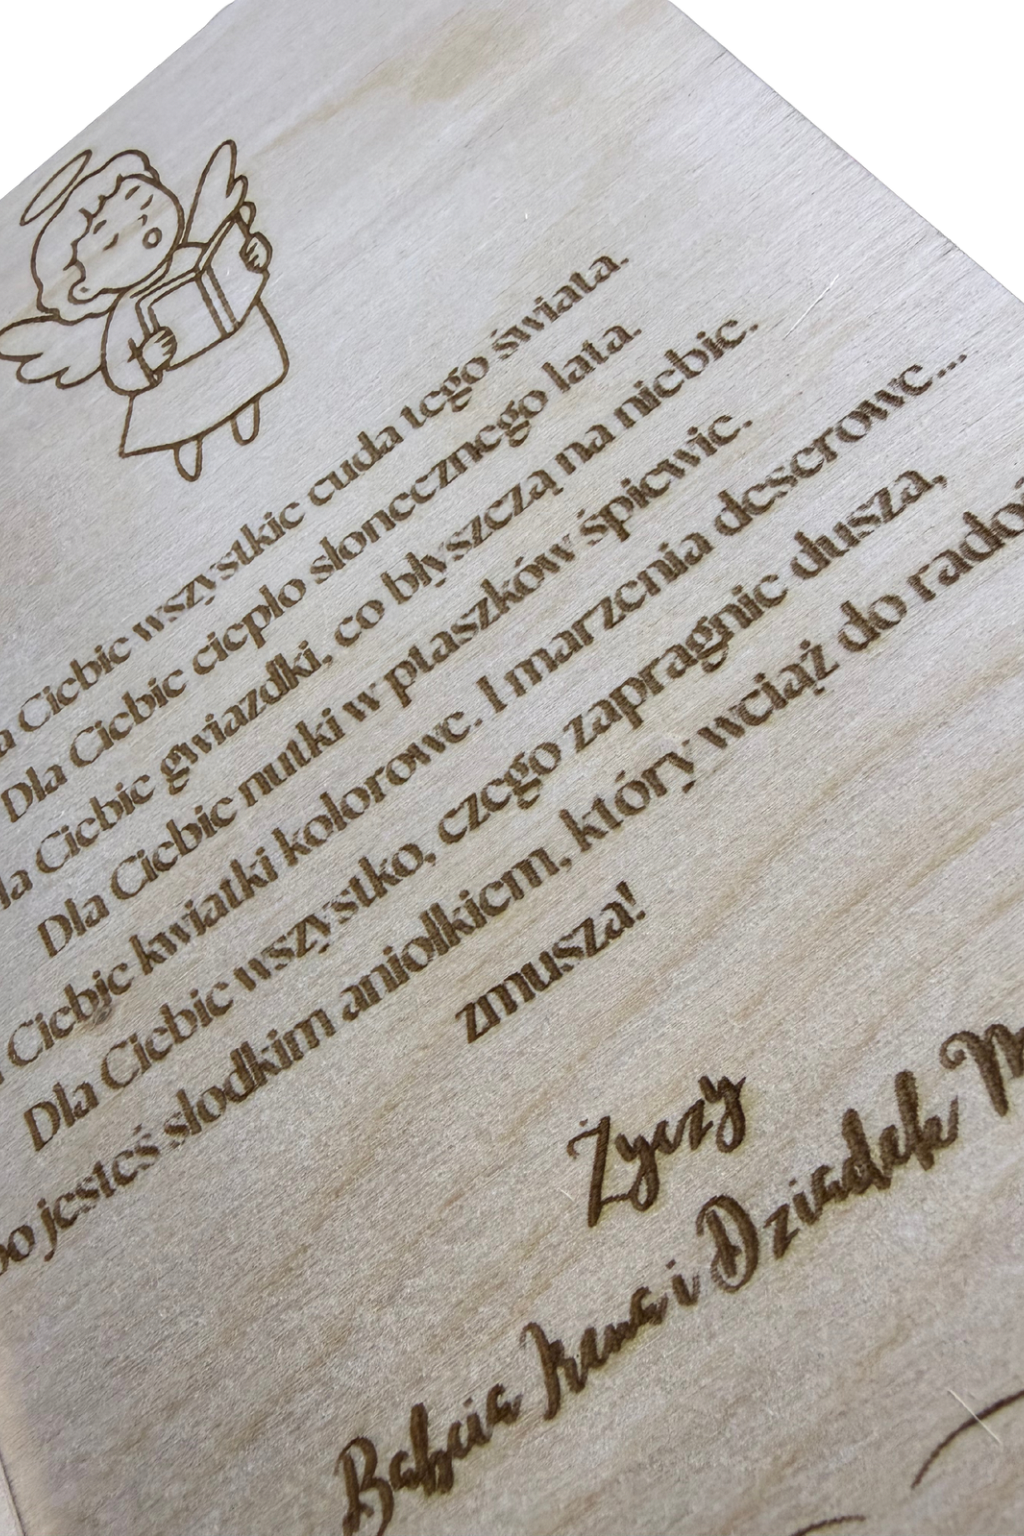 Ciebie wszystkie cuda tego świata.
Dla Ciebie ciepło słonecznego lata.
Ciebie gwiazdki, co błyszczą na niebie.
Dla Ciebie nutki w ptaszków śpiewie.
Ciebie kwiatki kolorowe. I marzenia deserowe...
Dla Ciebie wszystko, czego zapragnie dusza,
bo jesteś słodkim aniołkiem, który wciąż do
zmusza!
Życzy
Babcia Irena i Dziadek